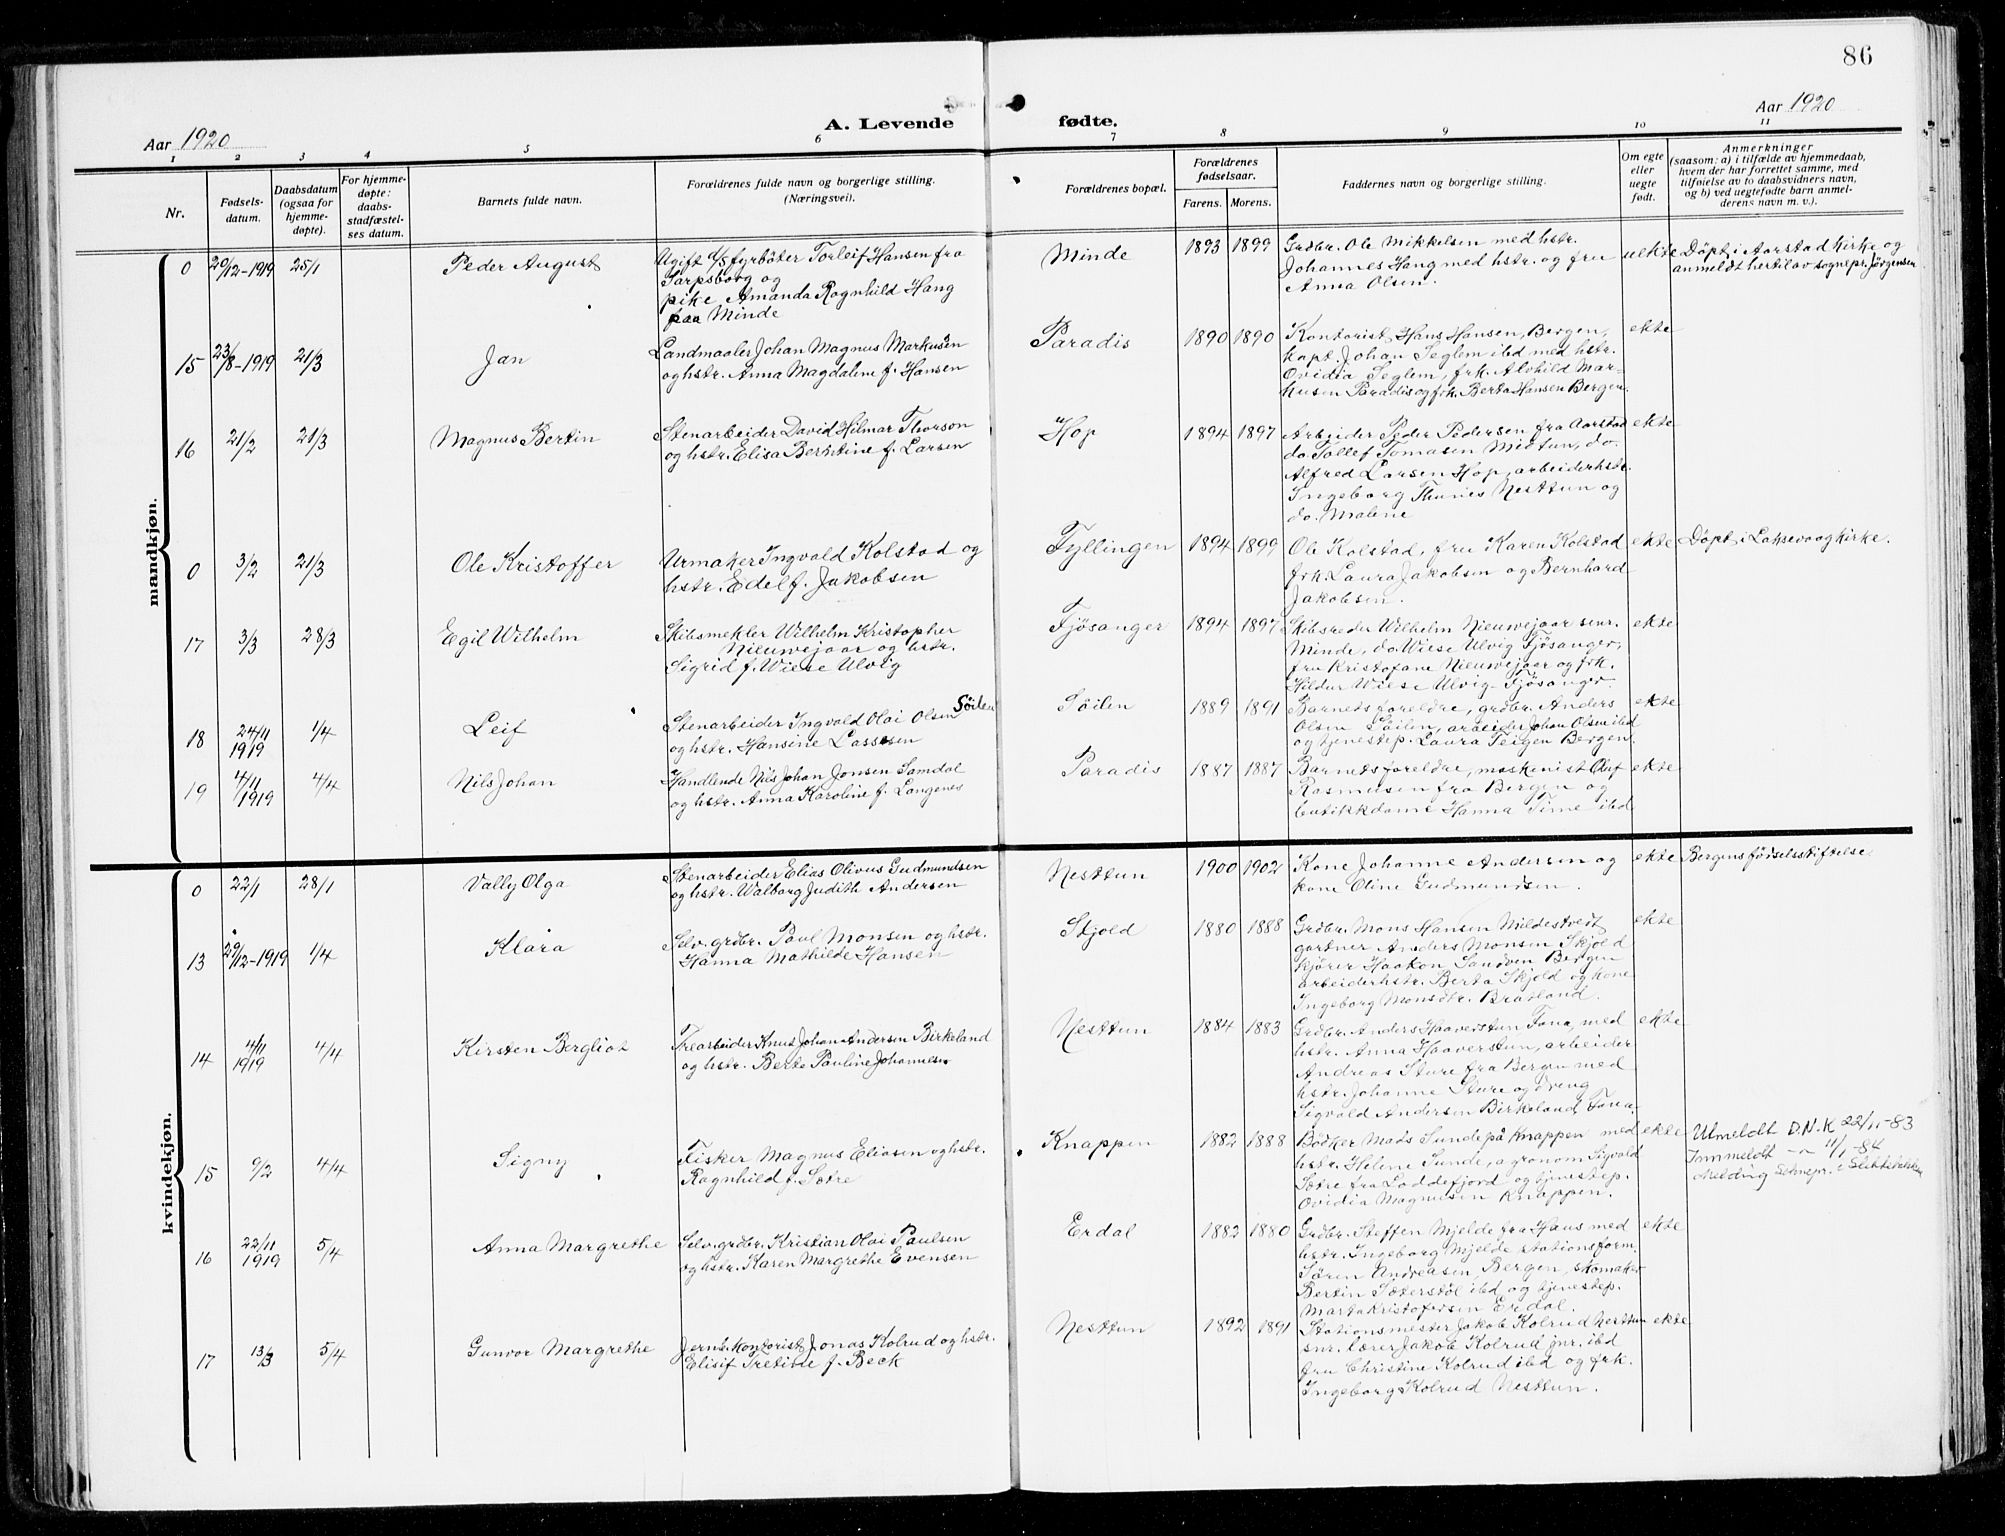 86
Aar 1920
A. Levende fødte.
Aar 1920
1 2 3 4 5 6 7 8 9 10 11
Nr.
Fødsels-
datum.
Daabsdatum
(ogsaa for
hjemme-
døpte).
For hjemme-
døpte:
daabs-
stadfæstel-
ses datum.
Barnets fulde navn.
Forældrenes fulde navn og borgerlige stilling.
(Næringsvei).
Forældrenes bopæl.
Forældrenes
fødselsaar.
Farens. Morens.
Faddernes navn og borgerlige stilling.
Om egte
eller
uegte
født.
Anmerkninger
(saasom: a) i tilfælde av hjemmedaab,
hvem der har forrettet samme, med
tilføielse av to daabsvidners navn,
og b) ved uegtefødte barn anmel-
derens navn m. v.).
mandkjøn.
0 29/12-1919 25/1 Peder August
Ugift fyrbøter Torleif Hansen fra
Sarpsborg og
pike Amanda Ragnhild Hang
paa Minde
Minde 1893 1899
Grdbr. Ole Mikkelsen med hstr.
Johannes Hang med hstr. og fru
Anna Olsen.
uekte
Döpt i Aarstad kirke og
anmeldt hertil av sognepr. Jørgensen
15 23/8-1919 21/3 Jan
Landmaaler Johan Magnus Markusen
og hstr. Anna Magdalene f. Hansen
Paradis 1890 1890
Kontorist Hans Hansen, Bergen,
kapt. Johan Seglem ibd med hstr.
Ovidia Seglem, frk. Alvhild Mar-
kusen Paradis og frk. Berta Hansen Bergen.
ekte
16 21/2 21/3 Magnus Bertin
Stenarbeider David Hilmar Thorson
og hstr. Elisa Berntine f. Larsen
Hop 1894 1897
Arbeider Peder Pedersen fra Aarstad
do. Tollef Tomasen Midtun, do.
Alfred Larsen Hop, arbeiderhstr.
Ingeborg Thunes Nesttun og
do. Malene
ekte
0 3/2 21/3 Ole Kristoffer
Urmaker Ingvald Kolstad og
hstr. Edel f. Jakobsen
Fyllingen 1894 1899
Ole Kolstad, fru Karen Kolstad
frk. Laura Jakobsen og Bernhard
Jakobsen.
ekte
Döpt i Laksevaag kirke.
17 3/3 28/3 Egil Wilhelm
Skibsmekler Wilhelm Kristopher
Nieuwejaar og hstr.
Sigrid f. Wiese Ulvig
Fjösanger 1894 1897
Skibsreder Wilhelm Nieuwejaar senr.
Minde, do. Wiese Ulvig Fjösanger,
fru Kristofane Nieuwejaar og frk.
Hildur Wiese Ulvig Fjösanger
ekte
18 24/11 1919 1/4 Leif
Stenarbeider Ingvald Olai Olsen Söilen
og hstr. Hansine Lassesen
Söilen 1889 1891
Barnets foreldre, grdbr. Anders
Olsen Söilen, arbeider Johan Olsen ibd
og tjenestep. Laura Teigen Bergen
ekte
19 4/11 1919 4/4 Nils Johan
Handlende Nils Johan Jonsen Samdal
og hstr. Anna Karoline f. Langenes
Paradis 1887 1887
Barnets foreldre, maskinist Oluf
Rasmusen fra Bergen og
butikkdame Hanna Time ibd
ekte
kvindekjøn.
0 22/1 28/1 Vally Olga
Stenarbeider Elias Olivus Gudmundsen
og hstr. Walborg Judith Andersen
Nesttun 1900 1902
Kone Johanne Andersen og
kone Oline Gudmundsen.
ekte
Bergens fødselsstiftelse
13 29/12-1919 1/4 Klara
Selv. grdbr. Paul Monsen og hstr.
Hanna Mathilde Hansen
Skjold 1880 1888
Grdbr. Mons Hansen Mildestvedt
gartner Anders Monsen Skjold
kjører Haakon Sandven Bergen
arbeiderhstr. Berta Skjold og kone
Ingeborg Monsdtr. Bratland.
ekte
14 4/11 1919 4/4 Kirsten Bergliot
Trearbeider Knut Johan Andersen Birkeland
og hstr. Berte Pauline Johannesen
Nesttun 1884 1883
Grdbr. Anders Haaverstun Fana, med
hstr. Anna Haaverstun, arbeider
Andreas Sture fra Bergen med
hstr. Johanne Sture og dreng
Sigvald Andersen Birkeland, Fana
ekte
15 9/2 4/4 Signy
Fisker Magnus Eliasen og hstr.
Ragnhild f. Sætre
Knappen 1882 1888
Bødker Mads Sunde på Knappen med
hstr. Helene Sunde, agronom Sigvald
Sætre fra Loddefjord og tjenestep.
Ovidia Magnusen Knappen.
ekte
Utmeldt D.N.K 22/11-83
Innmeldt - " - 11/1-84
Melding Soknepr. i Slettebakken
16 22/11 1919 5/4 Anna Margrethe
Selv. grdbr. Kristian Olai Paulsen
og hstr. Karen Margrethe Evensen
Erdal 1882 1880
Grdbr. Steffen Mjelde fra Haus med
hstr. Ingeborg Mjelde, stationsform.
Sören Andreasen, Bergen, skomaker
Bertin Sæterstöl ibd, og tjenestep.
Marta Kristofersen Erdal.
ekte
17 13/3 5/4 Gunvor Margrethe
Jernb. kontorist Jonas Kolrud og hstr.
Elisif f. Beck
Nesttun 1892 1891
Stationsmester Jakob Kolrud Nesttun
snr. lærer Jakob Kolrud jnr. ibd
fru Christine Kolrud ibd og frk.
Ingeborg Kolrud Nesttun.
ekte